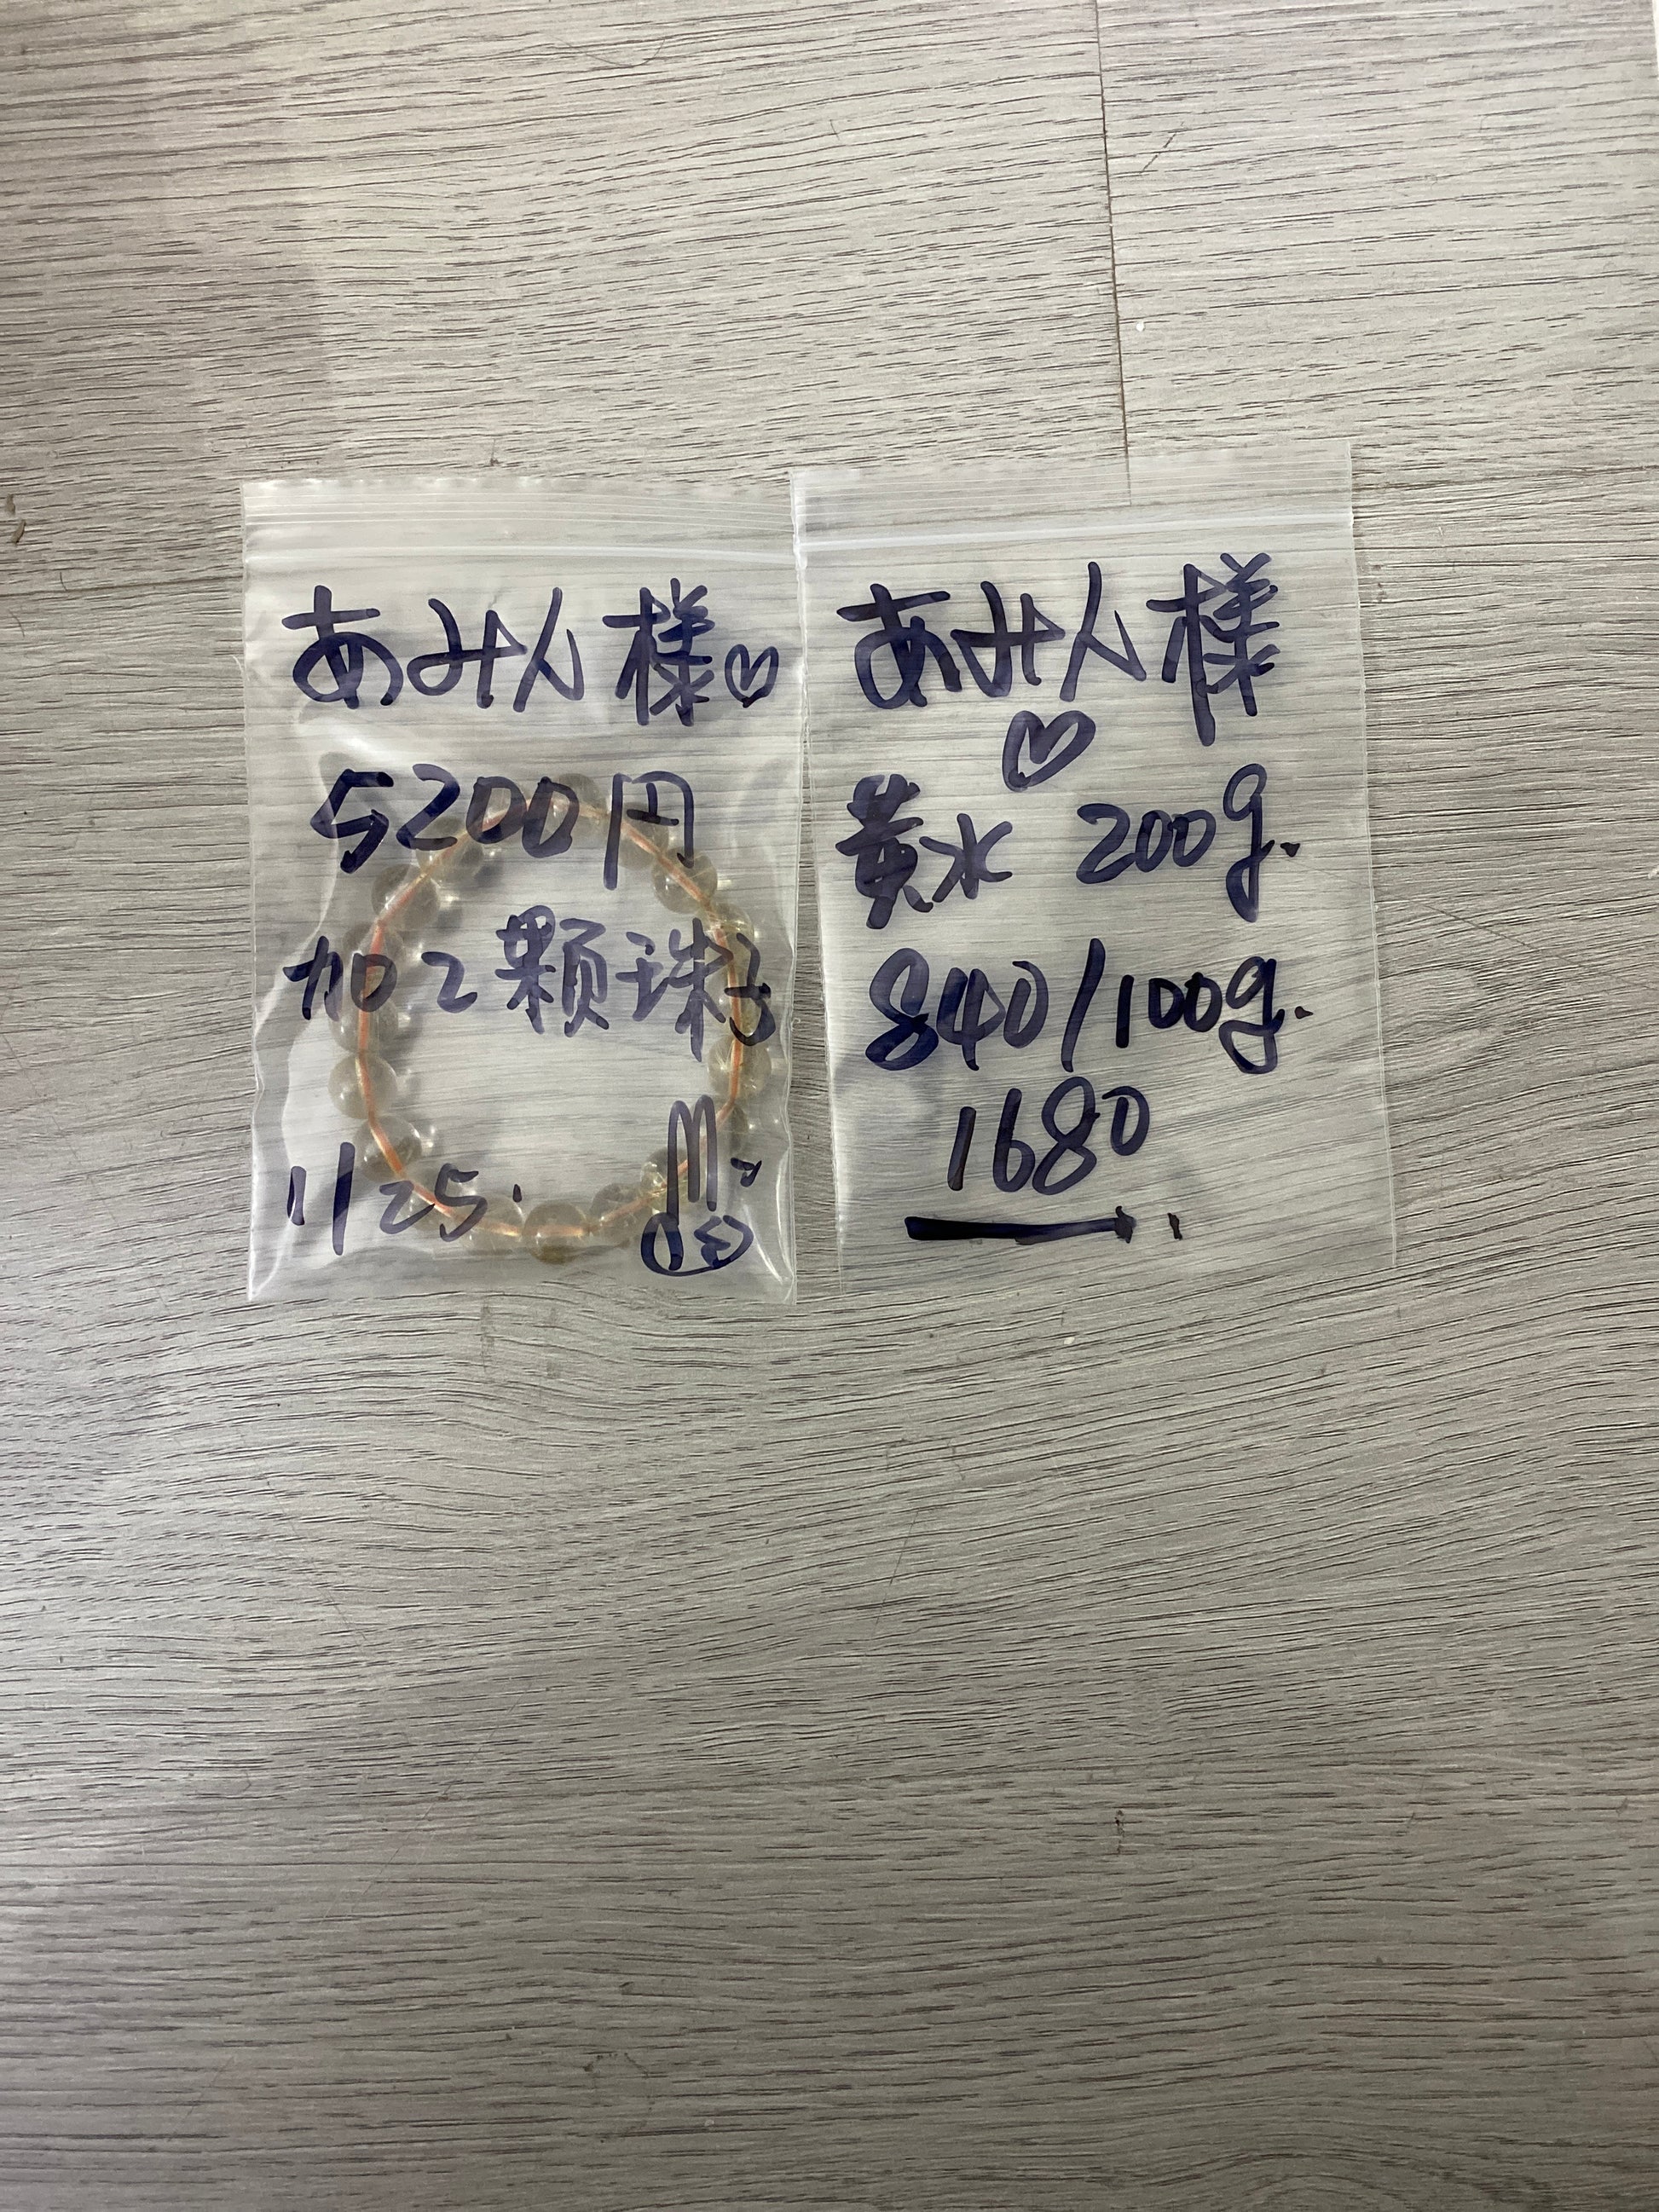 あみん様♡
5200円
加2颗珠子
11/25.
あみん様
♡
黄水 200g.
840/100g.
1680